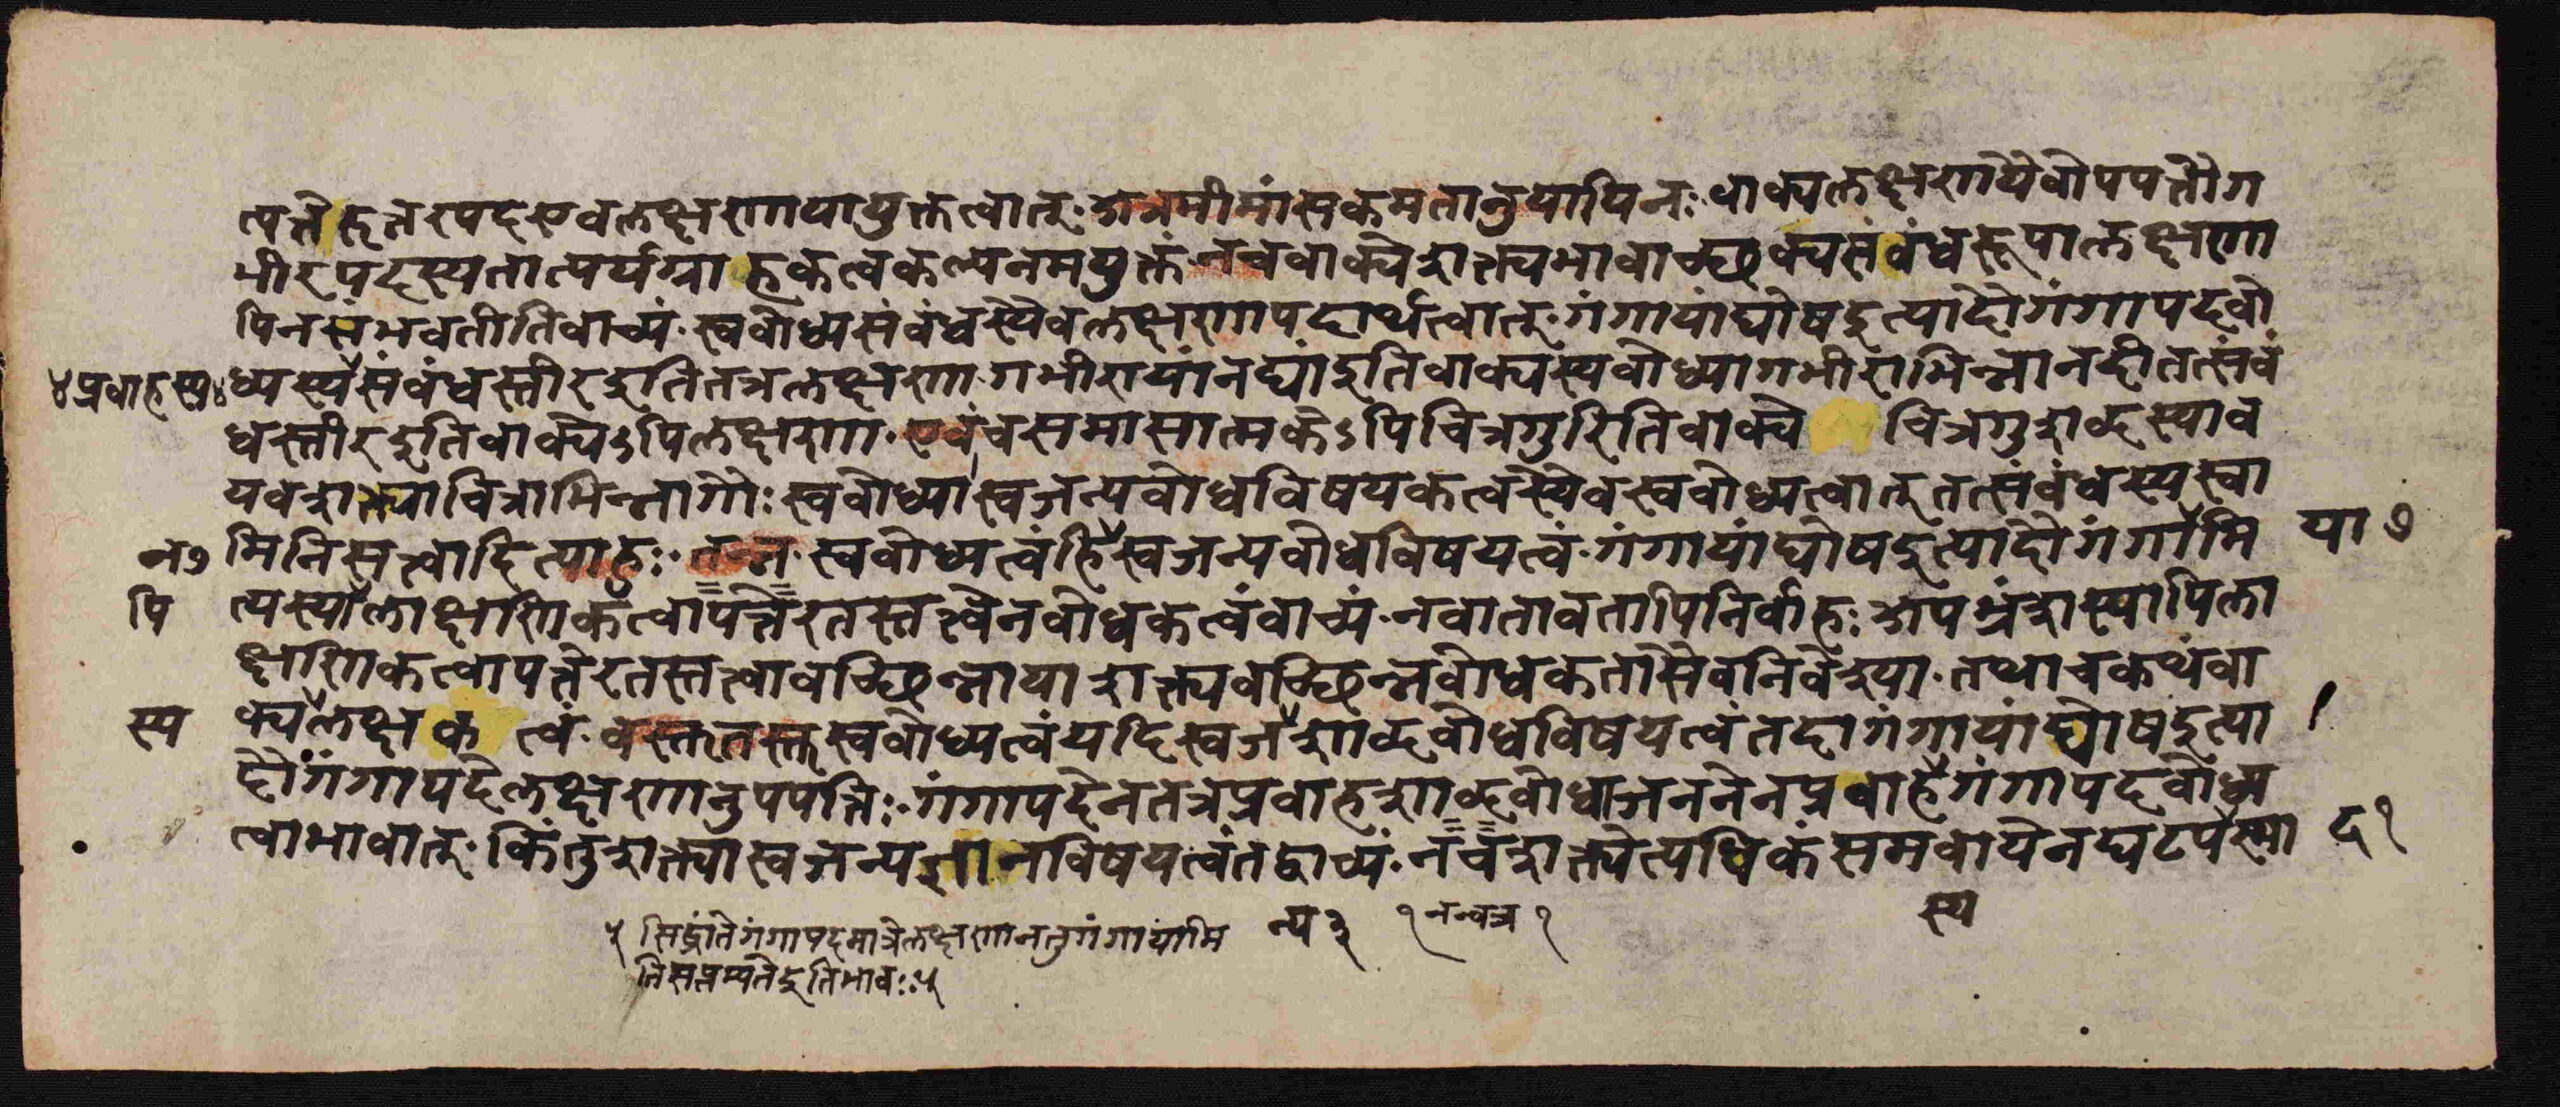 त्पत्तेरुत्तरपदएवलक्षणायायुक्तत्वात्· अत्रमीमांसकमतानुयायिनः वाक्यलक्षणायैवोपपत्तौग
भीरपदस्यतात्पर्यग्राहकत्वकल्पनमयुक्तं नचवाक्येशक्त्यभावाच्छक्यसंबंधरूपालक्षणा
पिनसंभवतीतिवाच्यं· स्वबोध्यसंबंधस्यैवलक्षणापदार्थत्वात्· गंगायांघोषइत्यादौगंगापदबो
४प्रवाहस्य४
ध्यस्यसंबंधस्तीरइतितत्रलक्षणा· गभीरायांनद्यांइतिवाक्यस्यबोध्यागभीराभिन्नानदीतत्संबं
धस्तीरइतिवाक्येऽपिलक्षणा· एवंचसमासात्मकेऽपिचित्रगुरितिवाक्ये चित्रगुशब्दस्याव
यवशक्त्याचित्राभिन्नागौः स्वबोध्या स्वजन्यबोधविषयकत्वस्यैवस्वबोध्यत्वात् तत्संबंधस्यस्वा
न७
मिनिसत्त्वादित्याहुः· तन्न· स्वबोध्यत्वंहिस्वजन्यबोधविषयत्वं· गंगायांघोषइत्यादौगंगामि
या७
पि
त्यस्यलाक्षणिकत्वापत्तेरतस्तत्त्वेनबोधकत्वंवाच्यं· नचातावतापिनिर्वाहः अपभ्रंशस्यापिला
क्षणिकत्वापत्तेरतस्तत्त्वावच्छिन्नायाशक्त्यवच्छिन्नबोधकतासैवनिवेश्या· तथाचकथंवा
स्य
क्यलक्षकत्वं· वस्तुतस्तुस्वबोध्यत्वंयदिस्वजशाब्दबोधविषयत्वंतदागंगायांघोषइत्या
दौगंगापदेलक्षणानुपपत्तिः· गंगापदेनतत्रप्रवाहशाब्दबोधाजननेनप्रवाहेगंगापदबोध्य
त्वाभावात्· किंतुशक्त्यास्वजन्यज्ञानविषयत्वंतद्वाच्यं· नचशक्त्येत्यधिकंसमवायेनघटपस्मा
द१
५ सिद्धांतेगंगापदमात्रेलक्षणानतुगंगायामि
तिसप्तम्यंतेइतिभावः५
न्य३
१नन्वत्र१
स्य